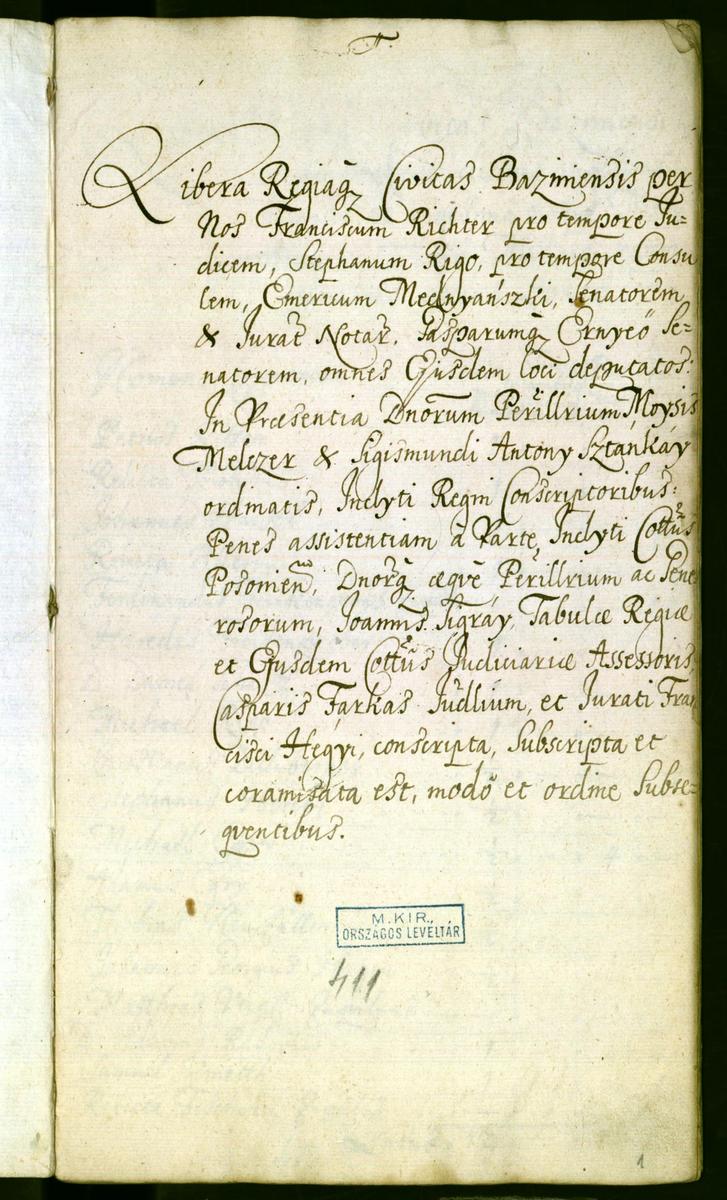 Libera Regiaq̃ Civitas Baziniensis per
Nos Franciscum Richter pro tempore Ju=
dicem, Stephanum Rigo, pro tempore Consu
lem, Emericum Mednyańszki, Senatorem
& Jurat̃ Notar̃, Gasparumq̃ Ernyeő Se=
natorem, omnes Ejusdem loci deputatos:
In Præsentia Dnorum Perillrium Moysis
Melczer & Sigismundi Antony Sztankay
ordinatis, Inclyti Regni Conscriptoribus:
Penes assistentiam à Parte, Inclyti Cottũs
Posonien, Dnorq̃ æqvè Perillrium ac Gene
rosorum, Joannis Sigray, Tabulæ Regiæ
et Ejusdem Cottũs Judiciariæ Assessoris,
Casparis Farkas Judlium, et Jurati Fran
cisci Hegyi, conscripta, Subscripta et
coramisata est, modo et ordine Subse=
qventibus.
M. KIR.
ORSZÁGOS LEVÉLTÁR
411
1